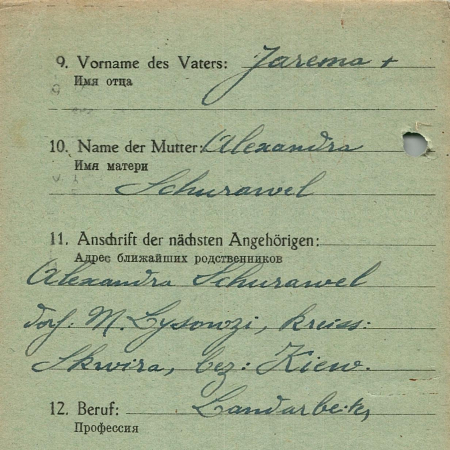 9. Vorname des Vaters: Jarema +
Имя отца
10. Name der Mutter: Alexandra
Имя матери
Schurawel
11. Anschrift der nächsten Angehörigen:
Адрес ближайших родственников
Alexandra Schurawel
dorf: M. Lysowzi, kreiss:
Skwira, bez: Kiew.
12. Beruf: Landarbeit,
Профессия